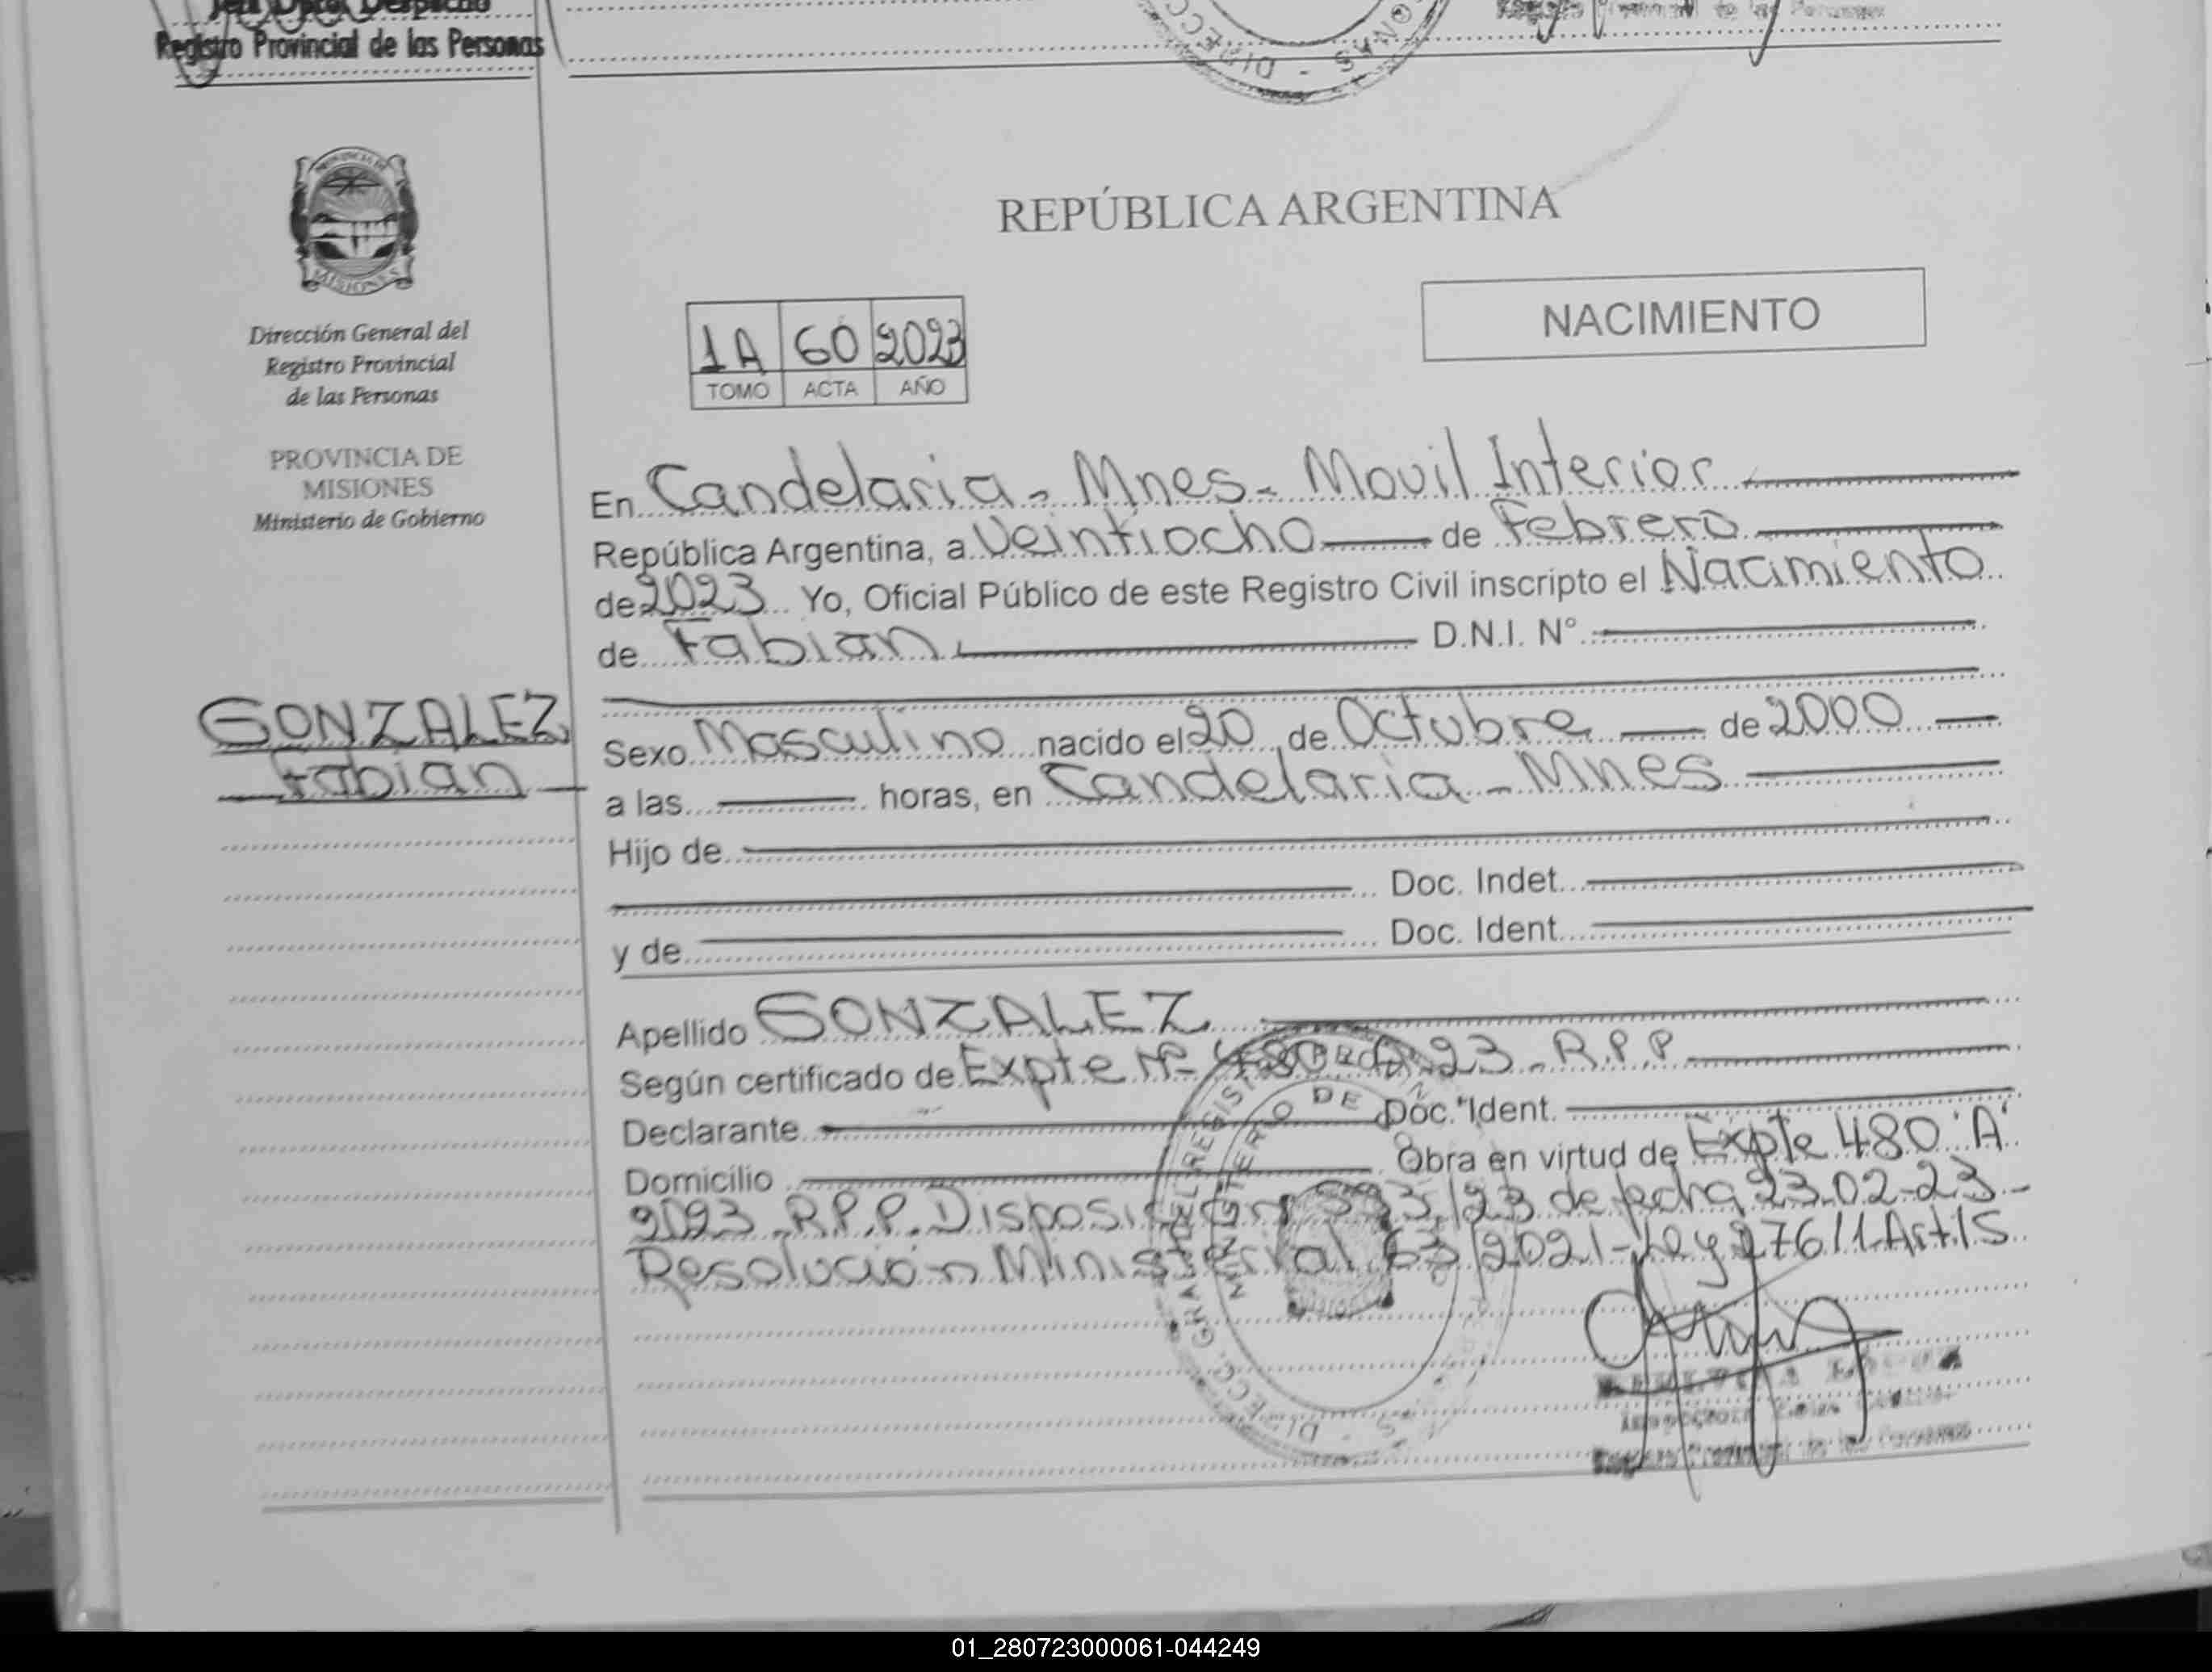 Registro Provincial de las Personas
PROVINCIA DE
MISIONES
Dirección General del
Registro Provincial
de las Personas
PROVINCIA DE
MISIONES
Ministerio de Gobierno
GONZALEZ
Fabian
REPÚBLICA ARGENTINA
NACIMIENTO
1A 60 2023
TOMO ACTA AÑO
En Candelaria - Mnes - Movil Interior
República Argentina, a Veintiocho de Febrero
de 2023 Yo, Oficial Público de este Registro Civil inscripto el Nacimiento
de Fabian D.N.I. N°
Sexo Masculino nacido el 20 de Octubre de 2000
a las horas, en Candelaria - Mnes
Hijo de
Doc. Indet.
y de Doc. Ident.
Apellido GONZALEZ
Según certificado de Expte Nº 480 23 - R.P.P
Declarante Doc. Ident.
Domicilio Obra en virtud de Expte 480 'A'
2023 - R.P.P. Disposicion /23 de fecha 23-02-23 -
Resolución Ministerial 63/2021 - Ley 27611 Art 15
01_280723000061-044249